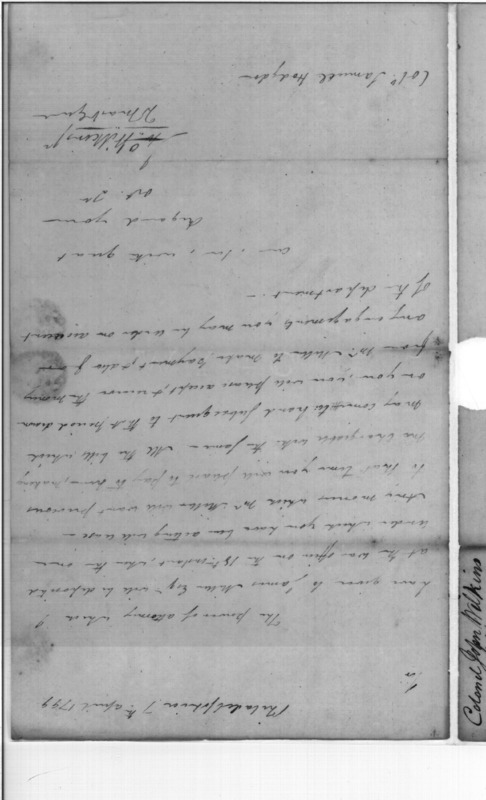 Philadelphia 7th April 1799
Sir
The power of attorney which I
have given to James Miller Esqr will be deposited
at the War office on the 15th instant, when the one
under which you have been acting will cease —
Any monies which Mr Miller will want previous
to that time you will please to pay to him, making
me chargeable with the same — All the bills which
may come to hand subsequent to that period drawn
on you, you will please accept, & receive the money
from Mr Miller to make payment, & also for
any engagements you may be under on account
of the department. —
am, Sir, with great
Regard your
Obt. St
J Wilkins Jr
Colo. Samuel Hodgdon
Colonel John Wilkins